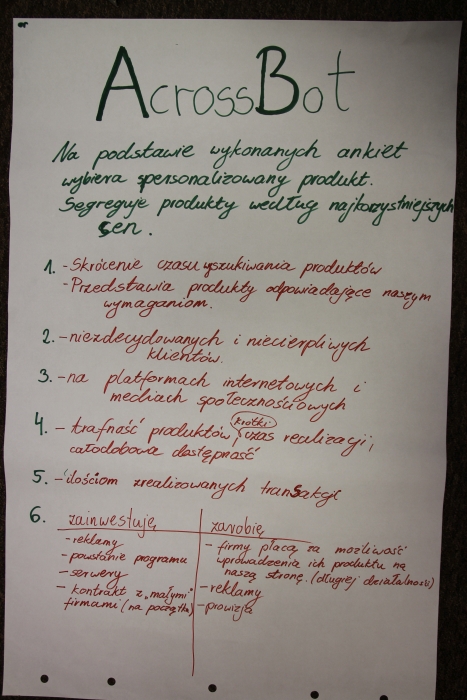 AcrossBot
Na podstawie wykonanych ankiet
wybiera spersonalizowany produkt.
Segreguje produkty według najkorzystniejszych
cen.
1. - Skrócenie czasu wyszukiwania produktów
- Przedstawia produkty odpowiadające naszym
wymaganiom.
2. - niezdecydowanych i niecierpliwych
klientów.
3. - na platformach internetowych i
mediach społecznościowych
4. - trafność produktów, krótki czas realizacji,
całodobowa dostępność
5. - ilościom zrealizowanych transakcji
6. zainwestuję
- reklamy
- powstanie programu
- serwery
- kontrakt z „małymi"
firmami (na początku)
zarobię
- firmy płacą za możliwość
wprowadzenia ich produktu na
naszą stronę. (długiej działalności)
- reklamy
- prowizja